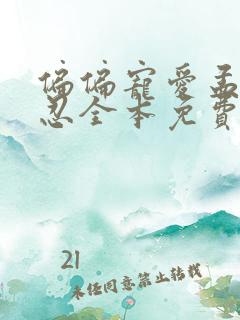 偏偏寵愛孟
忍全本免費
21
未经同意禁止转载